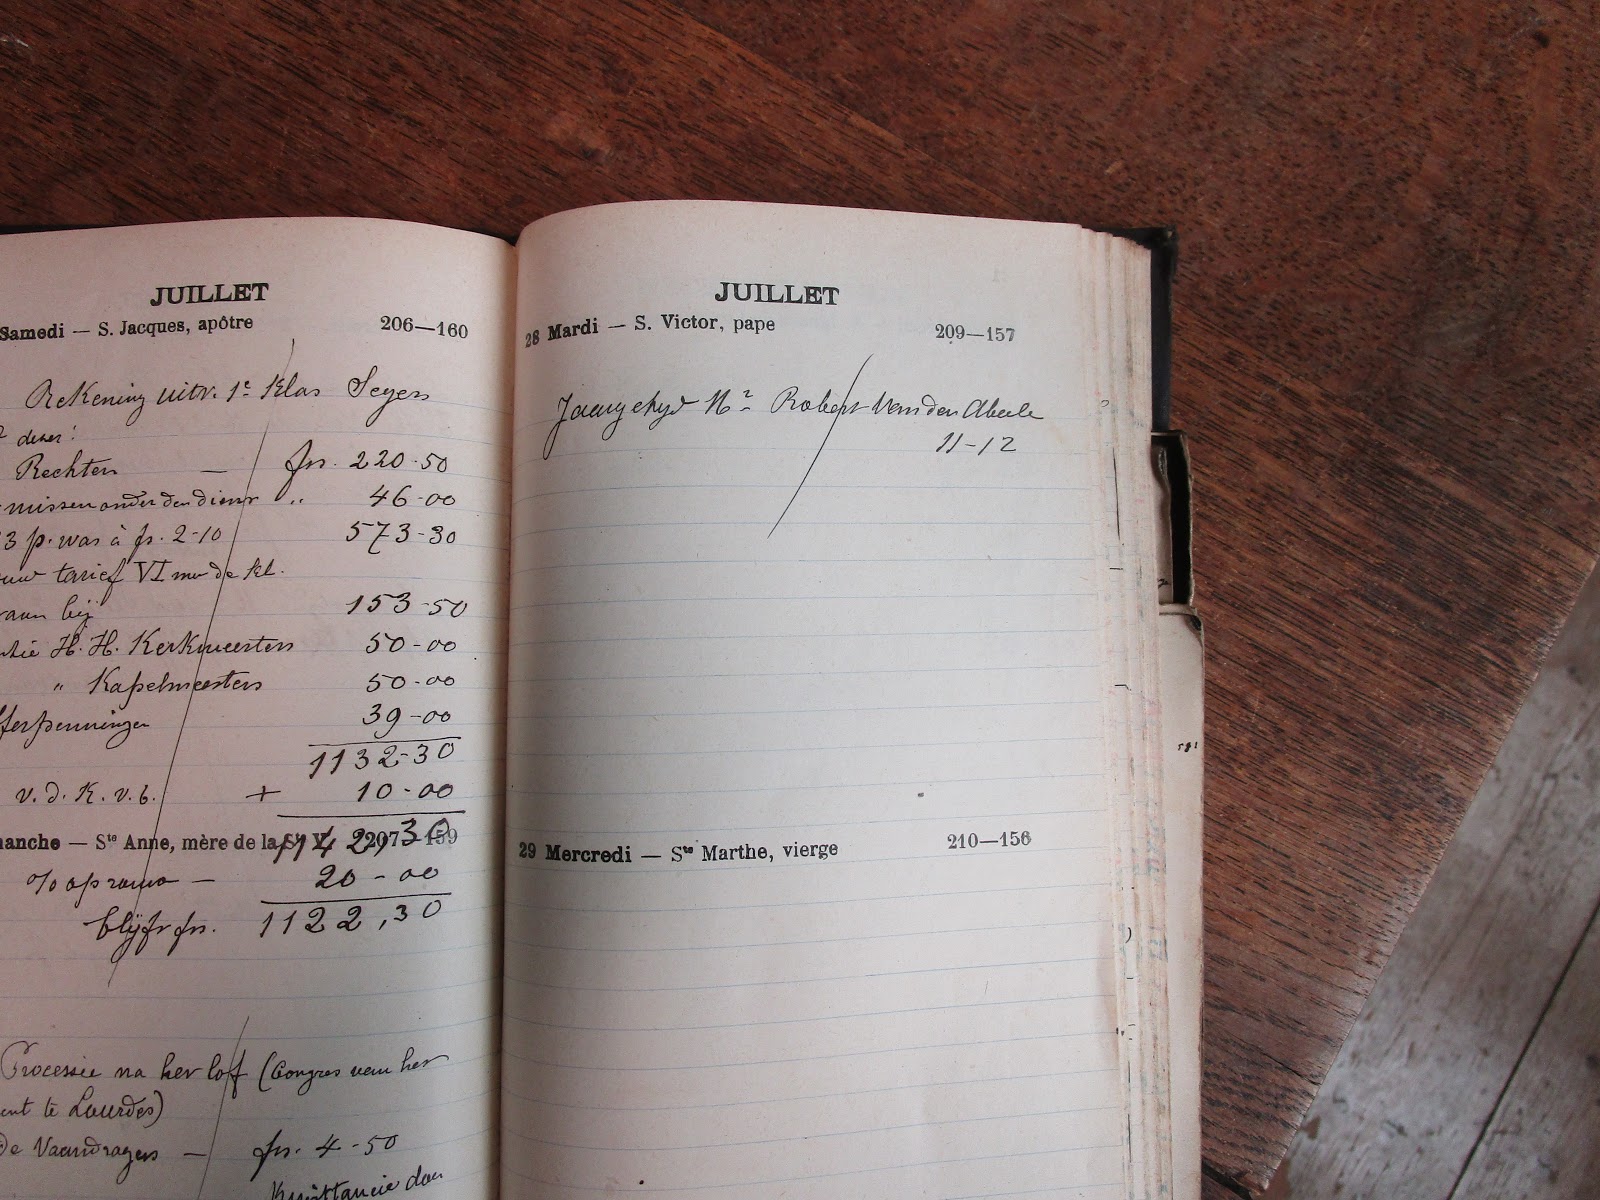 JUILLET
Samedi — S. Jacques, apôtre 206—160
Rekening uitv. 1e Klas Segers
Rechten — frs. 220-50
missen onder den dienst „ 46-00
3 p. was à fr. 2-10 573-30
tarief VI
aan bij 153-50
H. H. Kerkmeesters 50-00
" Kapelmeesters 50-00
39-00
1132-30
v. d. K. v. b. + 10-00
manche — Ste Anne, mère de la Ste V. 207—159
1142,30
20-00
blijft frs. 1122,30
Processie na het lof (Congres van het
te Lourdes)
de Vaandragers — frs. 4-50
Kwittancie
JUILLET
28 Mardi — S. Victor, pape 209—157
Jaargetijd Mr Robert Van den Abeele
11-12
29 Mercredi — Ste Marthe, vierge 210—156